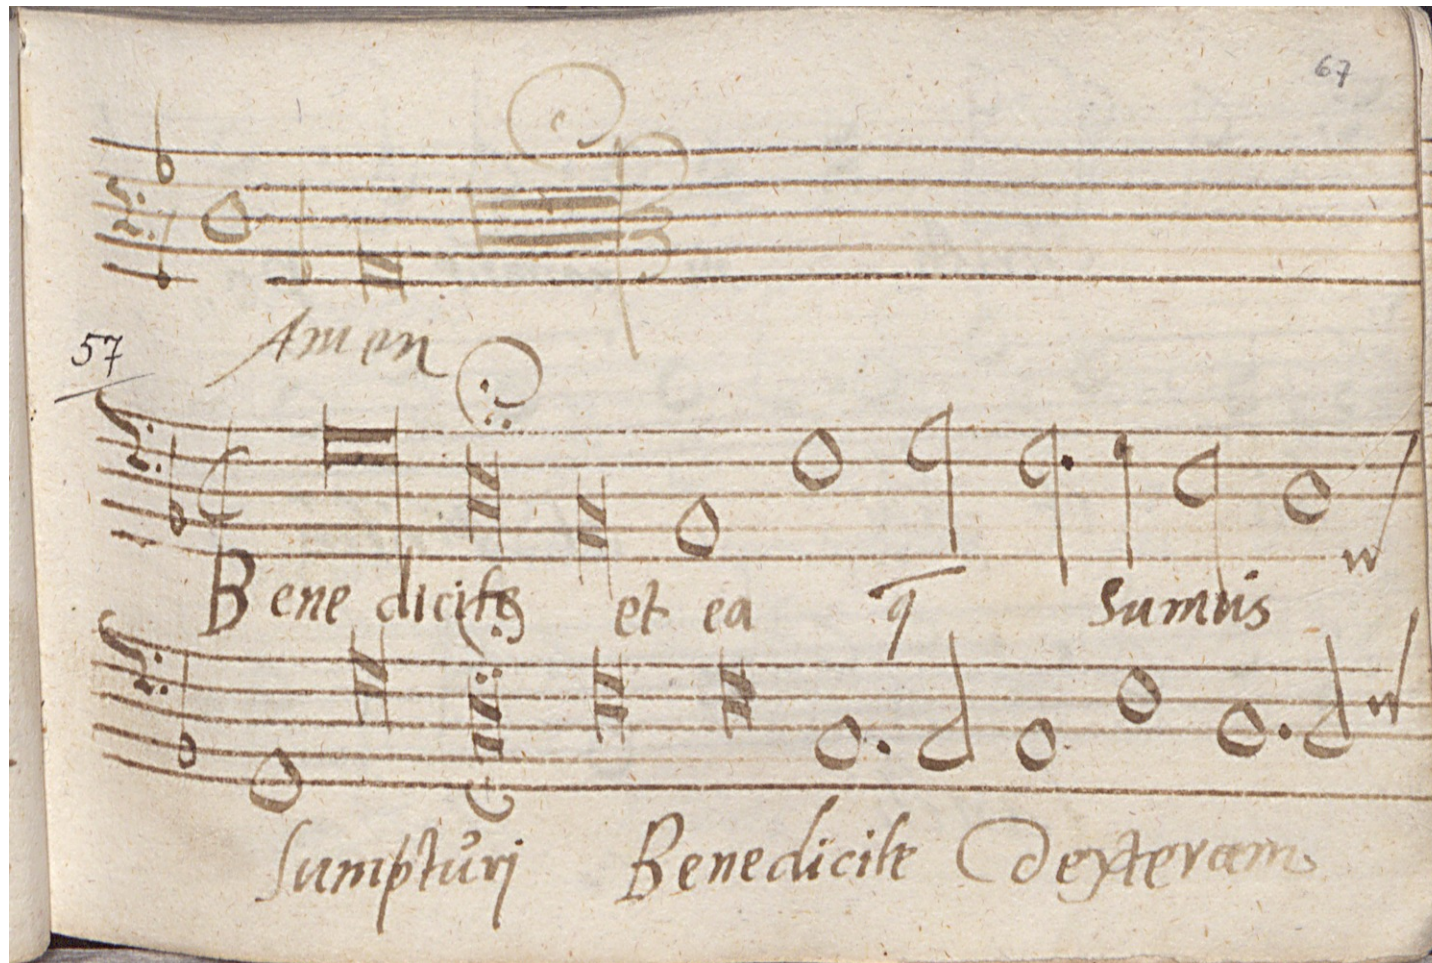 67
Amen
57
Bene dicite et ea q̄ Sumus
Sumpturi Benedicite Dexteram